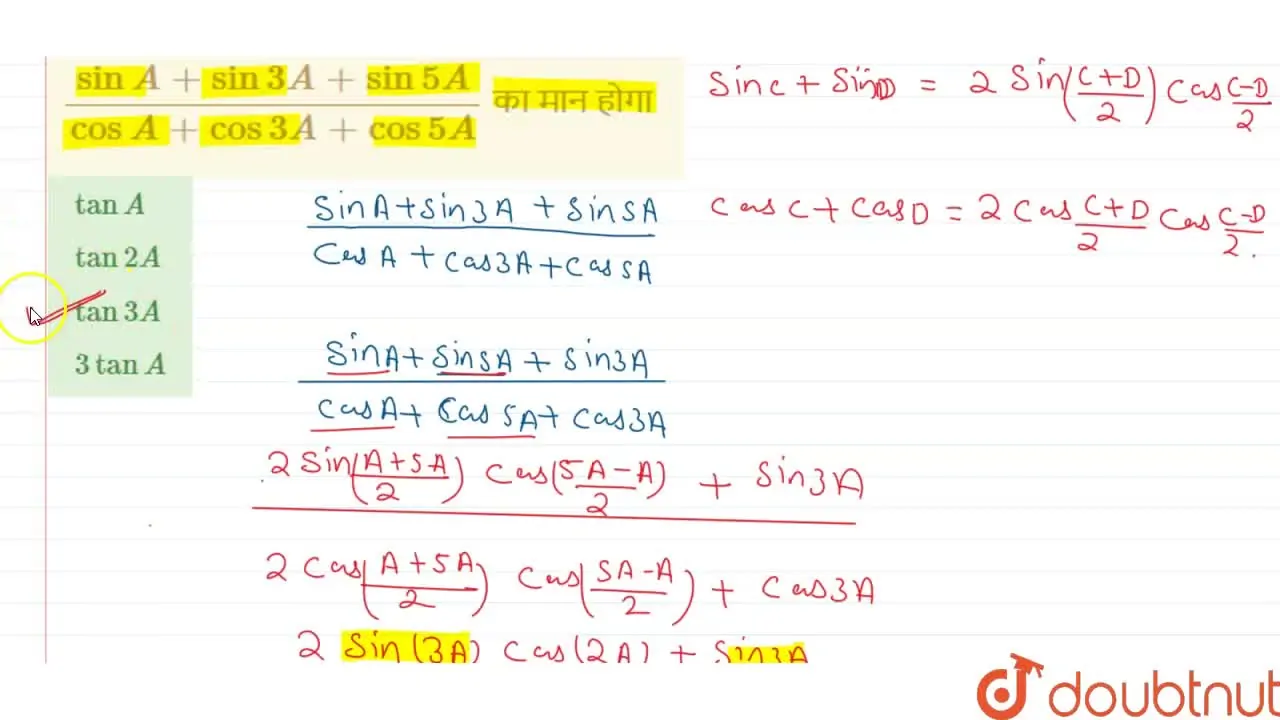 sin A + sin 3A + sin 5A
cos A + cos 3A + cos 5A
का मान होगा
tan A
tan 2A
tan 3A
3 tan A
Sin C + Sin D = 2 Sin (C+D)/2 Cos (C-D)/2
Cos C + Cos D = 2 Cos (C+D)/2 Cos (C-D)/2.
SinA + Sin3A + Sin5A
Cos A + Cos3A + Cos5A
SinA + Sin5A + Sin3A
CosA + Cos 5A + Cos3A
2 Sin (A+5A)/2 Cos (5A-A)/2 + Sin3A
2 Cos (A+5A)/2 Cos (5A-A)/2 + Cos3A
2 Sin(3A) Cos(2A) + Sin3A
doubtnut